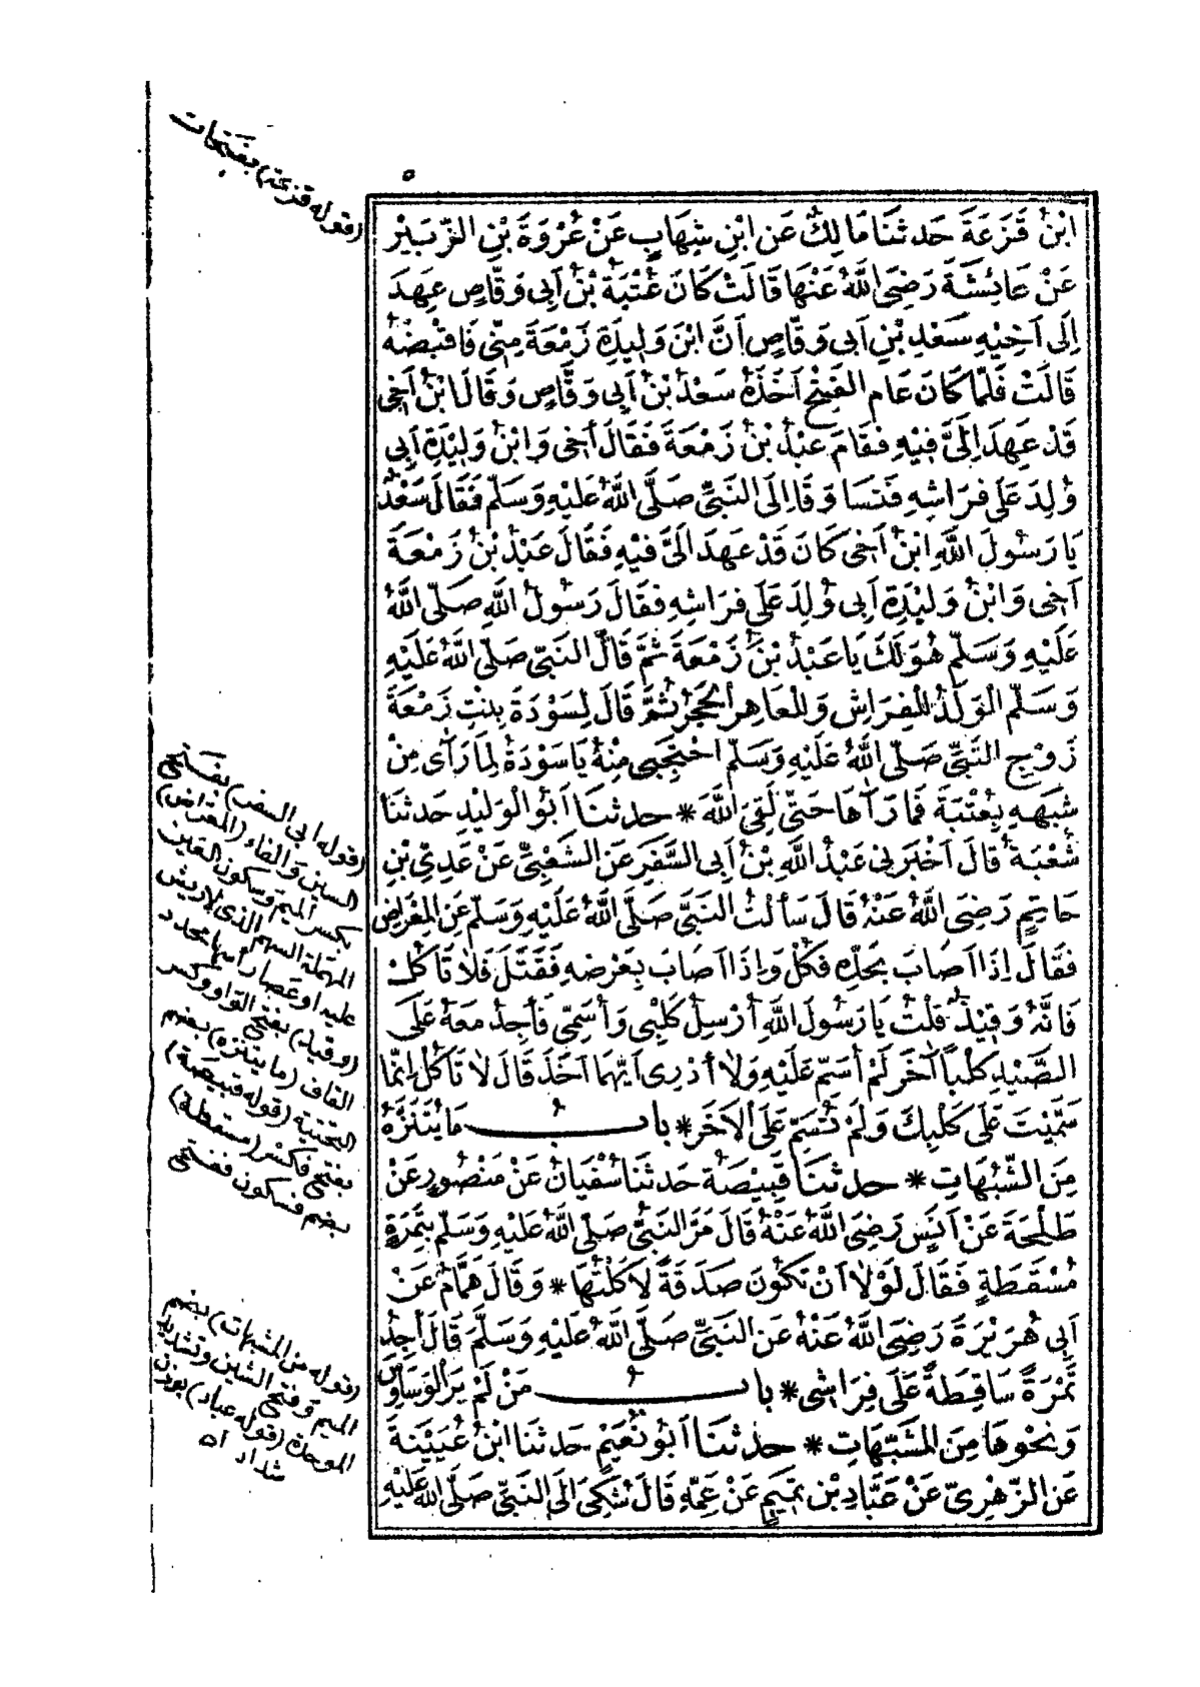 (قوله قزعة) بفتحات
ه
ابْنُ قَزَعَةَ حَدثنَا مَالِكٌ عَنِ ابْنِ شِهَابٍ عَنْ عُرْوَةَ بْنِ الزُّبَيْرِ
عَنْ عَائِشَةَ رَضِيَ اللَّهُ عَنْهَا قَالَتْ كَانَ عُتْبَةُ بْنُ أَبِي وَقَّاصٍ عَهِدَ
إِلَى أَخِيْهِ سَعْدِ بْنِ أَبِي وَقَّاصٍ أَنَّ ابْنَ وَلِيْدَةِ زَمْعَةَ مِنِّي فَاقْبِضْهُ
قَالَتْ فَلَمَّا كَانَ عَام الفَتْحِ أَخَذَهُ سَعْدُ بْنُ أَبِي وَقَّاصٍ وَقَالَ ابْنُ أَخِي
قَدْ عَهِدَ إِلَيَّ فِيْهِ فَقَامَ عَبْدُ بْنُ زَمْعَةَ فَقَالَ أَخِي وَابْنُ وَلِيْدَةِ أَبِي
وُلِدَ عَلَى فِرَاشِهِ فَتَسَاوَقَا إِلَى النَّبِيِّ صَلَّى اللَّهُ عَلَيْهِ وَسَلَّمَ فَقَالَ سَعْدٌ
يَا رَسُولَ اللَّهِ ابْنُ أَخِي كَانَ قَدْ عَهِدَ إِلَيَّ فِيْهِ فَقَالَ عَبْدُ بْنُ زَمْعَةَ
أَخِي وَابْنُ وَلِيْدَةِ أَبِي وُلِدَ عَلَى فِرَاشِهِ فَقَالَ رَسُولُ اللَّهِ صَلَّى اللَّهُ
عَلَيْهِ وَسَلَّمَ هُوَ لَكَ يَا عَبْدُ بْنَ زَمْعَةَ ثُمَّ قَالَ النَّبِيّ صَلَّى اللَّهُ عَلَيْهِ
وَسَلَّمَ الْوَلَدُ لِلْفِرَاشِ وَلِلْعَاهِرِ الحَجَرُ ثُمَّ قَالَ لِسَوْدَةَ بِنْتِ زَمْعَةَ
زَوْجِ النَّبِيِّ صَلَّى اللَّهُ عَلَيْهِ وَسَلَّمَ احْتَجِبِي مِنْهُ يَا سَوْدَةُ لِمَا رَأَى مِنْ
شَبَهِهِ بِعُتْبَةَ فَمَا رَآهَا حَتَّى لَقِيَ اللَّهَ * حدثنَا أَبُو الْوَلِيْدِ حَدثنَا
شُعْبَةُ قَالَ أَخْبَرَنِي عَبْدُ اللَّهِ بْنُ أَبِي السَّفَرِ عَنِ الشَّعْبِيِّ عَنْ عَدِيِّ بْنِ
حَاتِمٍ رَضِيَ اللَّهُ عَنْهُ قَالَ سَأَلْتُ النَّبِيَّ صَلَّى اللَّهُ عَلَيْهِ وَسَلَّمَ عَنِ المِعْرَاضِ
فَقَالَ إِذَا أَصَابَ بِحَدِّهِ فَكُلْ وَإِذَا أَصَابَ بِعَرْضِهِ فَقَتَلَ فَلَا تَأْكُلْ
فَإِنَّهُ وَقِيْذٌ قُلْتُ يَا رَسُولَ اللَّهِ أُرْسِلُ كَلْبِي وَأُسَمِّي فَأَجِدُ مَعَهُ عَلَى
الصَّيْدِ كَلْبًا آخَرَ لَمْ أُسَمِّ عَلَيْهِ وَلَا أَدْرِي أَيُّهُمَا أَخَذَ قَالَ لَا تَأْكُلْ إِنَّمَا
سَمَّيْتَ عَلَى كَلْبِكَ وَلَمْ تُسَمِّ عَلَى الْآخَرِ * بابُ مَا يُتَنَزَّهُ
مِنَ الشُّبُهَاتِ * حدثنَا قَبِيْصَةُ حَدثنَا سُفْيَانُ عَنْ مَنْصُورٍ عَنْ
طَلْحَةَ عَنْ أَنَسٍ رَضِيَ اللَّهُ عَنْهُ قَالَ مَرَّ النَّبِيُّ صَلَّى اللَّهُ عَلَيْهِ وَسَلَّمَ بِتَمْرَةٍ
مُسْقَطَةٍ فَقَالَ لَوْلَا أَنْ تَكُونَ صَدَقَةً لَأَكَلْتُهَا * وَقَالَ هَمَّامٌ عَنْ
أَبِي هُرَيْرَةَ رَضِيَ اللَّهُ عَنْهُ عَنِ النَّبِيِّ صَلَّى اللَّهُ عَلَيْهِ وَسَلَّمَ قَالَ أَجِدُ
تَمْرَةً سَاقِطَةً عَلَى فِرَاشِي * بابُ مَنْ لَمْ يَرَ الْوَسَاوِسَ
وَنَحْوَهَا مِنَ الْمُشَبَّهَاتِ * حدثنَا أَبُو نُعَيْمٍ حَدثنَا ابْنُ عُيَيْنَةَ
عَنِ الزُّهْرِيِّ عَنْ عَبَّادِ بْنِ تَمِيْمٍ عَنْ عَمِّهِ قَالَ شُكِيَ إِلَى النَّبِيِّ صَلَّى اللَّهُ عَلَيْهِ
(قوله ابى السفر) بفتح
السين والفاء (المعراض)
بكسر الميم وسكون العين
المهملة السهم الذى لا ريش
عليه او عصا رأسها محدد
(وقيذ) بفتح الواو وكسر
القاف (ما يتنزه) بضم
التحتية (قوله قبيصة)
بفتح فكسر (مسقطة)
بضم فسكون ففتح
(قوله من المشبهات) بضم
الميم وفتح الشين وتشديد
الموحدة (قوله عباد) بوزن
شداد اه